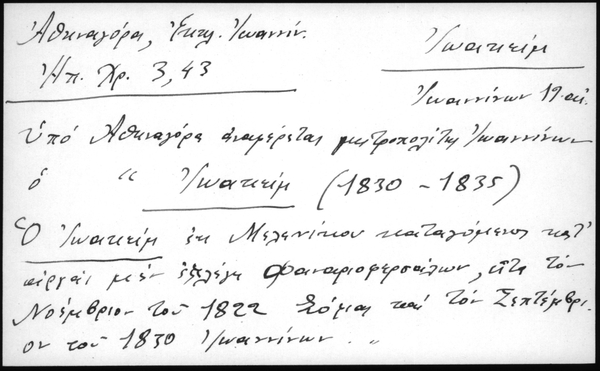 Ἀθηναγόρα, Ἐκκλ. Ἰωαννίν.
Ἠπ. Χρ. 3, 43
Ἰωακείμ
Ἰωαννίνων 19 αἰ.
Ὑπό Ἀθηναγόρα ἀναφέρεται μητροπολίτης Ἰωαννίνων
ὁ “ Ἰωακείμ (1830 – 1835)
Ὁ Ἰωακείμ ἐκ Μελενίκου καταγόμενος κατ’
ἀρχάς μέν ἐξελέγη Φαναριοφερσάλων, εἶτα τόν
Νοέμβριον τοῦ 1822 καί τόν Σεπτέμβρι-
ον τοῦ 1830 Ἰωαννίνων. „